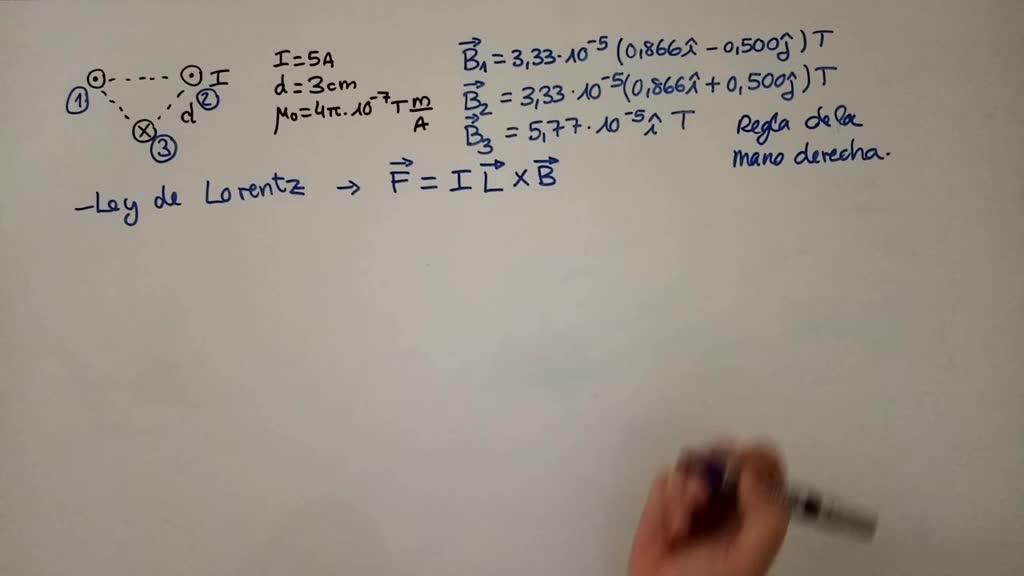 ① ② ③ I d
I = 5A
d = 3cm
μ₀ = 4π·10⁻⁷ T m/A
B⃗₁ = 3,33·10⁻⁵ (0,866î − 0,500ĵ) T
B⃗₂ = 3,33·10⁻⁵ (0,866î + 0,500ĵ) T
B⃗₃ = 5,77·10⁻⁵ î T
Regla de la
mano derecha.
-Ley de Lorentz → F⃗ = I L⃗ × B⃗